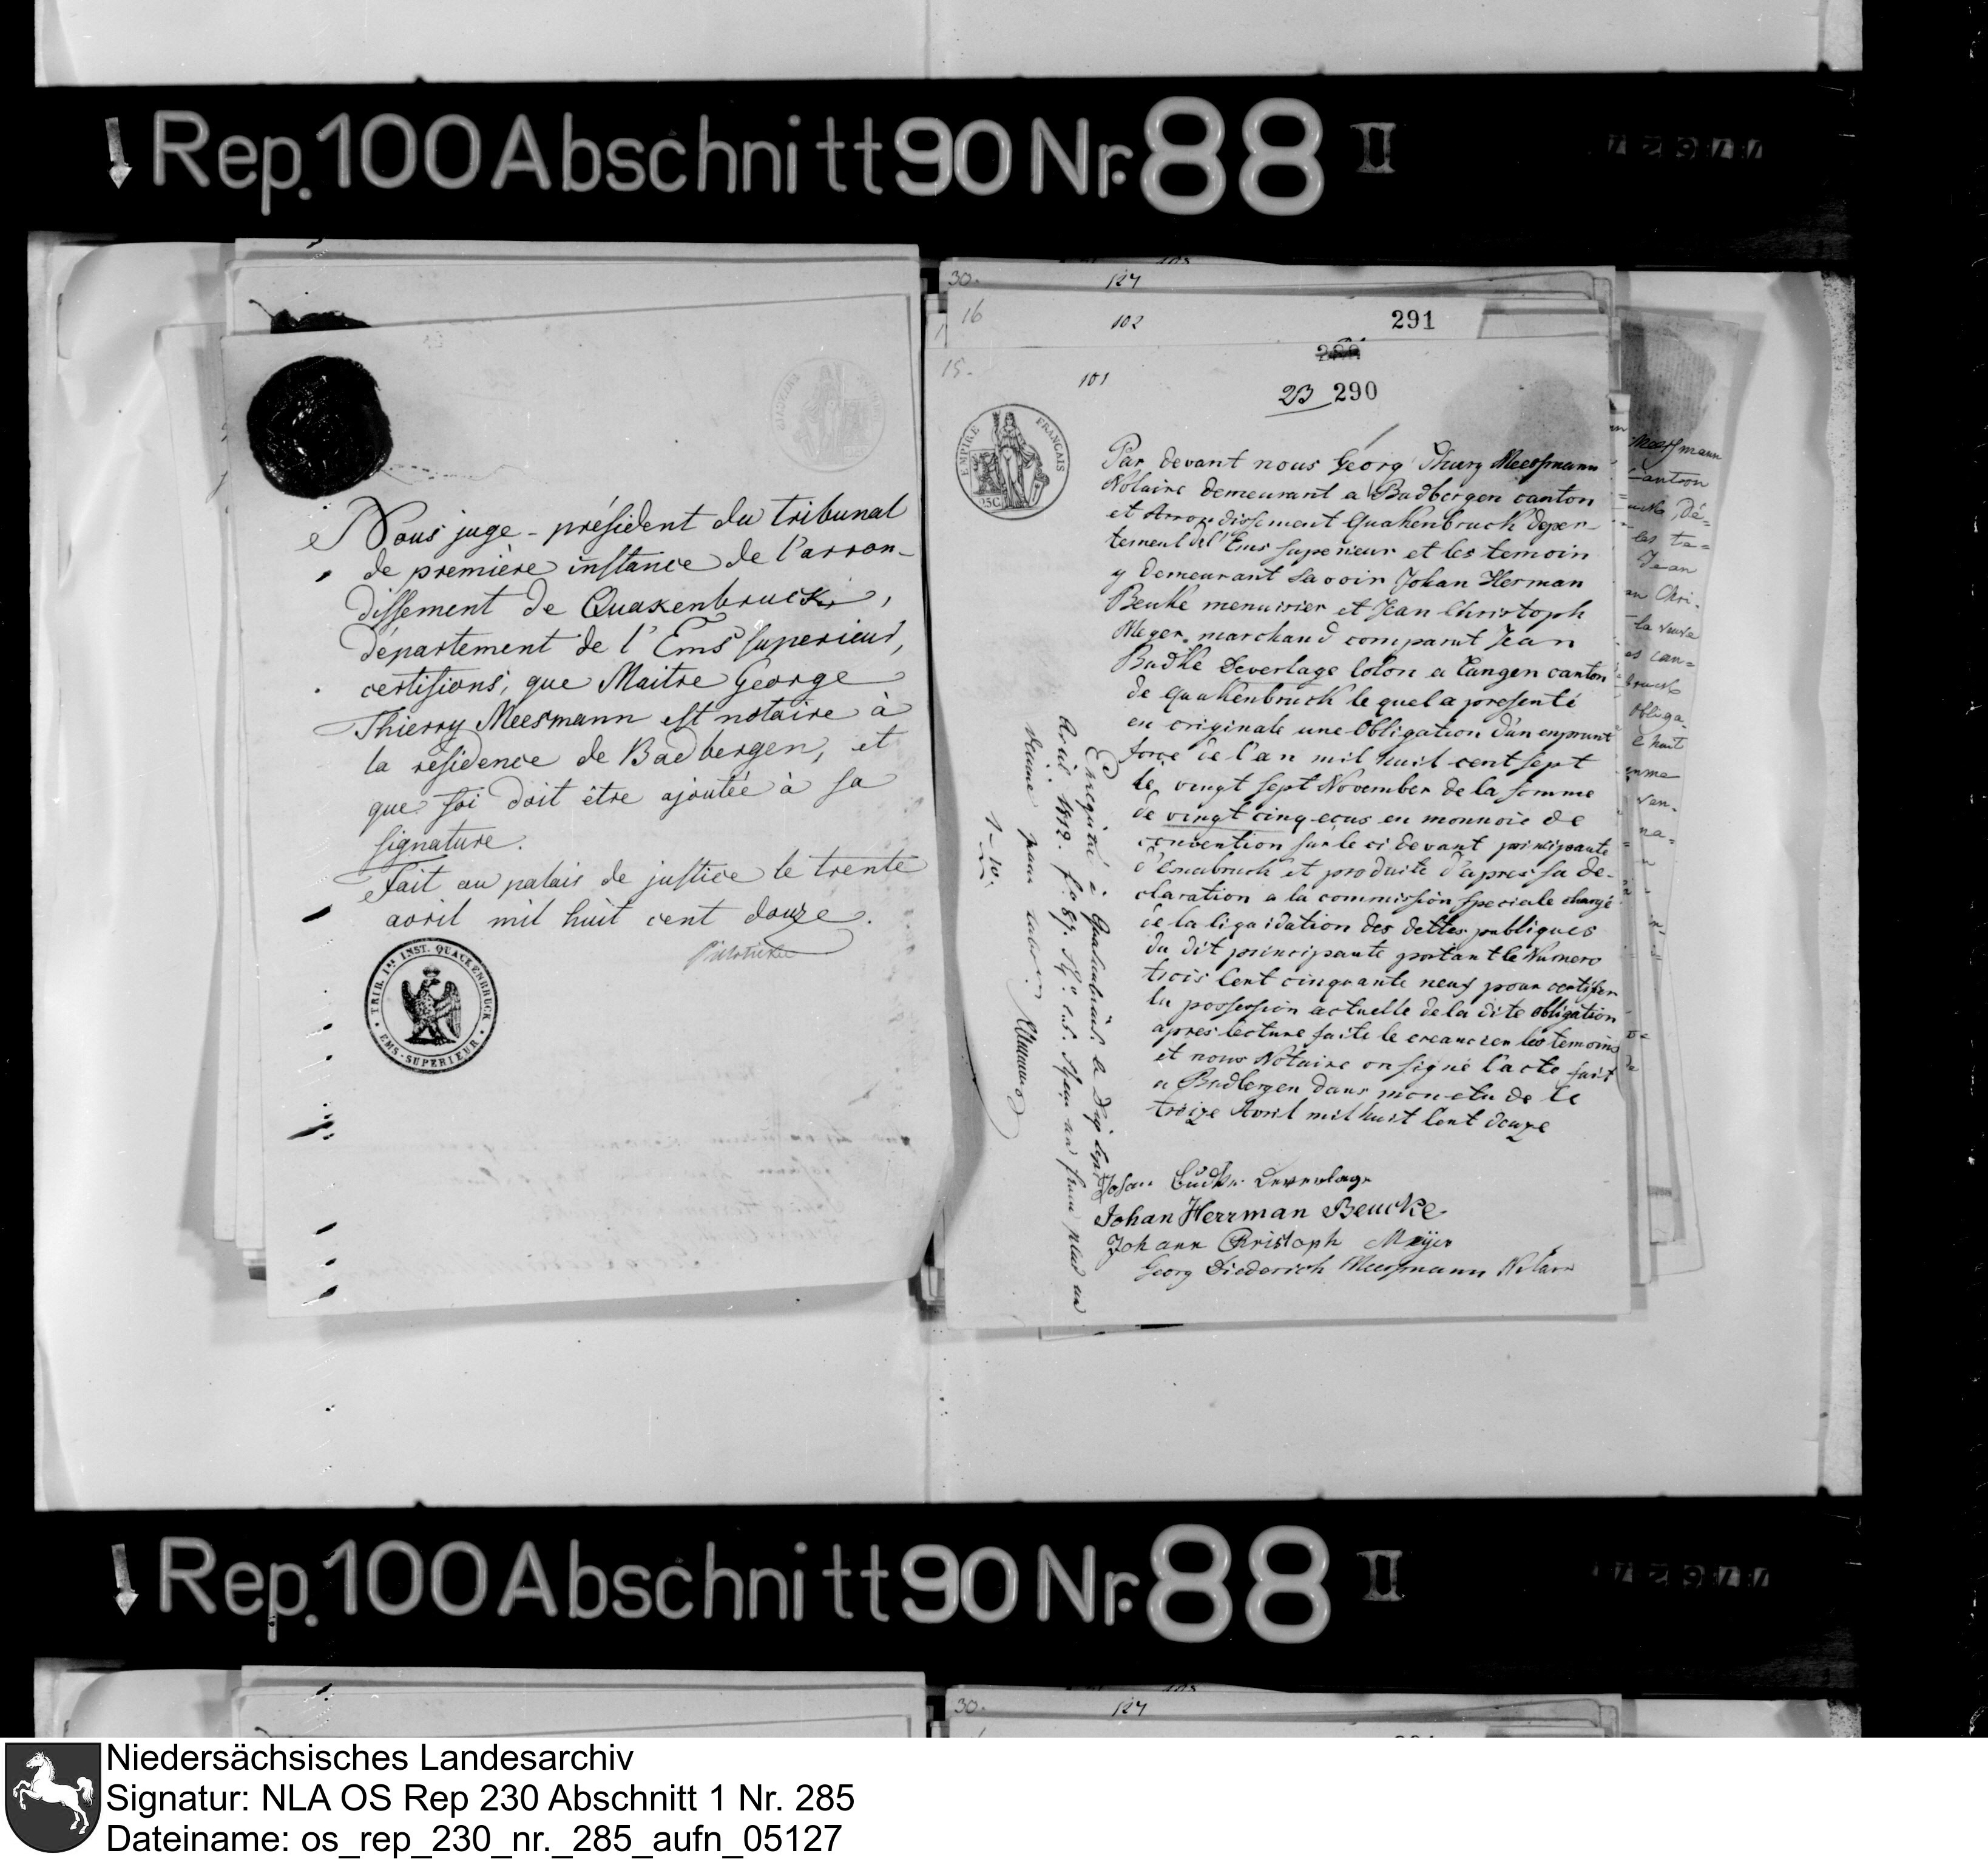 Rep. 100 Abschnitt 90 Nr. 88 II
Nous juge-président du tribunal
de premiere instance de l'arron-
dissement de Quakenbruck,
département de l'Ems superieur,
certifions, que Maitre George
Thierry Meesmann est notaire à
la residence de Badbergen, et
que foi doit être ajoutée à sa
signature.
Fait au palais de justice le trente
avril mil huit cent douze.
TRIB. 1re INST. QUACKENBRUCK
EMS-SUPERIEUR
30.
127
16
102
291
15.
101
290
EMPIRE FRANÇAIS
25C
Par devant nous Georg Meesmann
Notaire demeurant a Badbergen canton
et Arrondissement Quakenbruck deper-
tement de l'Ems superieur et les temoin
y demeurant savoir Johan Herman
Beuke menuisier et Jean Christoph
Meyer marchand comparut Jean
Budke Deverlage Colon a Langen canton
de Quakenbruck le quel a presenté
en originale une Obligation d'un emprunt
forcé de l'an mil huit cent sept
le vingt sept November de la somme
de vingt cinq ecus en monnoie de
convention sur le ci devant principauté
d'Osnabruck et produite d'apres sa de-
claration a la commission speciale chargé
de la liquidation des dettes publiques
du dit principauté portant le Numero
trois Cent cinquante neuf pour certifier
la possession actuelle de la dite obligation
apres lecture faite le creancier les temoins
et nous Notaire on signé l'acte fait
a Badbergen dans mon etude le
treize Avril mil huit Cent douze
Johan Budke Deverlage
Johan Herrman Beucke
Johann Christoph Meyer
Georg Diederich Meesmann Notair
Enregistré à Quakenbruck le dix sept
Avril 1812. f.o 87.
1-10.
Meessmann
Canton
Jean
la veuve
Obliga-
Rep. 100 Abschnitt 90 Nr. 88 II
30.
127
Niedersächsisches Landesarchiv
Signatur: NLA OS Rep 230 Abschnitt 1 Nr. 285
Dateiname: os_rep_230_nr._285_aufn_05127